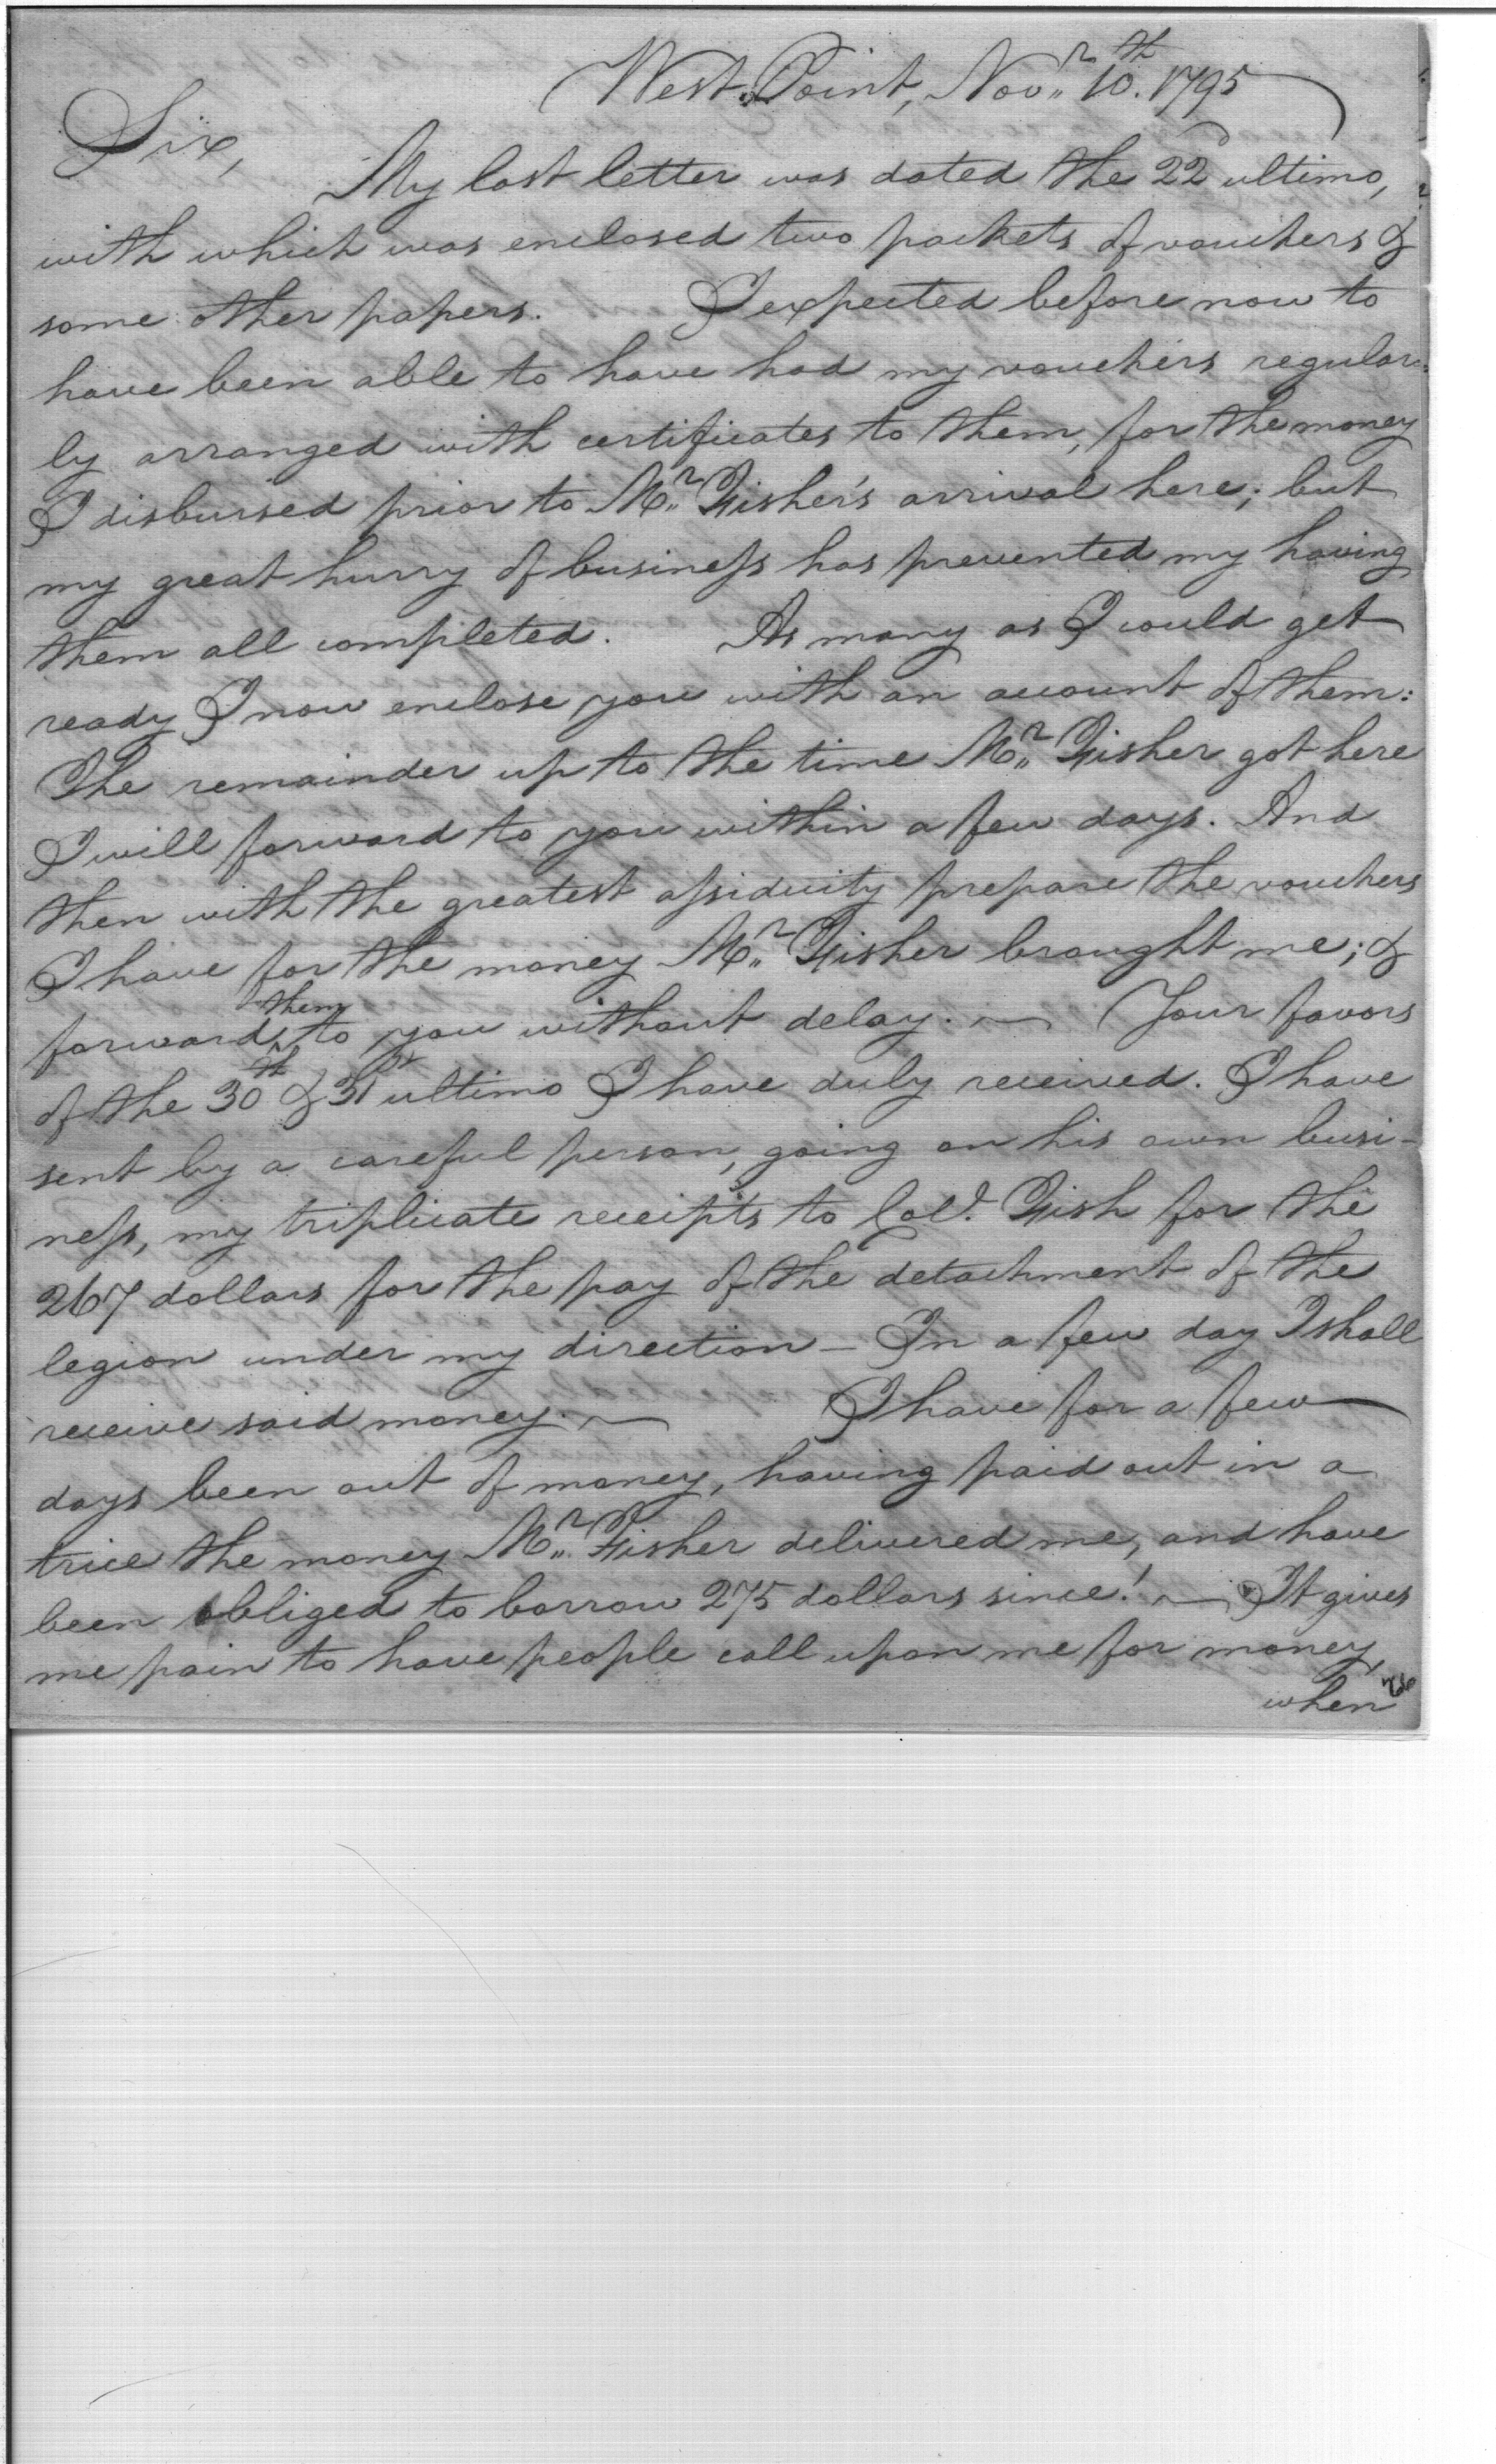 West Point, Novr 10th. 1795
Sir,
My last letter was dated the 22d ultimo,
with which was enclosed two packets of vouchers &
some other papers. I expected before now to
have been able to have had my vouchers regular:
ly arranged with certificates to them, for the money
I disbursed prior to Mr. Fisher's arrival here; but
my great hurry of business has prevented my having
them all completed. As many as I could get
ready I now enclose you with an account of them:
The remainder up to the time Mr. Fisher got here
I will forward to you within a few days. And
then with the greatest assiduity prepare the vouchers
I have for the money Mr. Fisher brought me; &
forward them to you without delay. — Your favors
of the 30th & 31st ultimo I have duly received. I have
sent by a careful person, going on his own busi-
ness, my triplicate receipts to Col. Fish for the
267 dollars for the pay of the detachment of the
legion under my direction — In a few day I shall
receive said money. — I have for a few
days been out of money, having paid out in a
trice the money Mr. Fisher delivered me, and have
been obliged to borrow 275 dollars since! — It gives
me pain to have people call upon me for money,
when